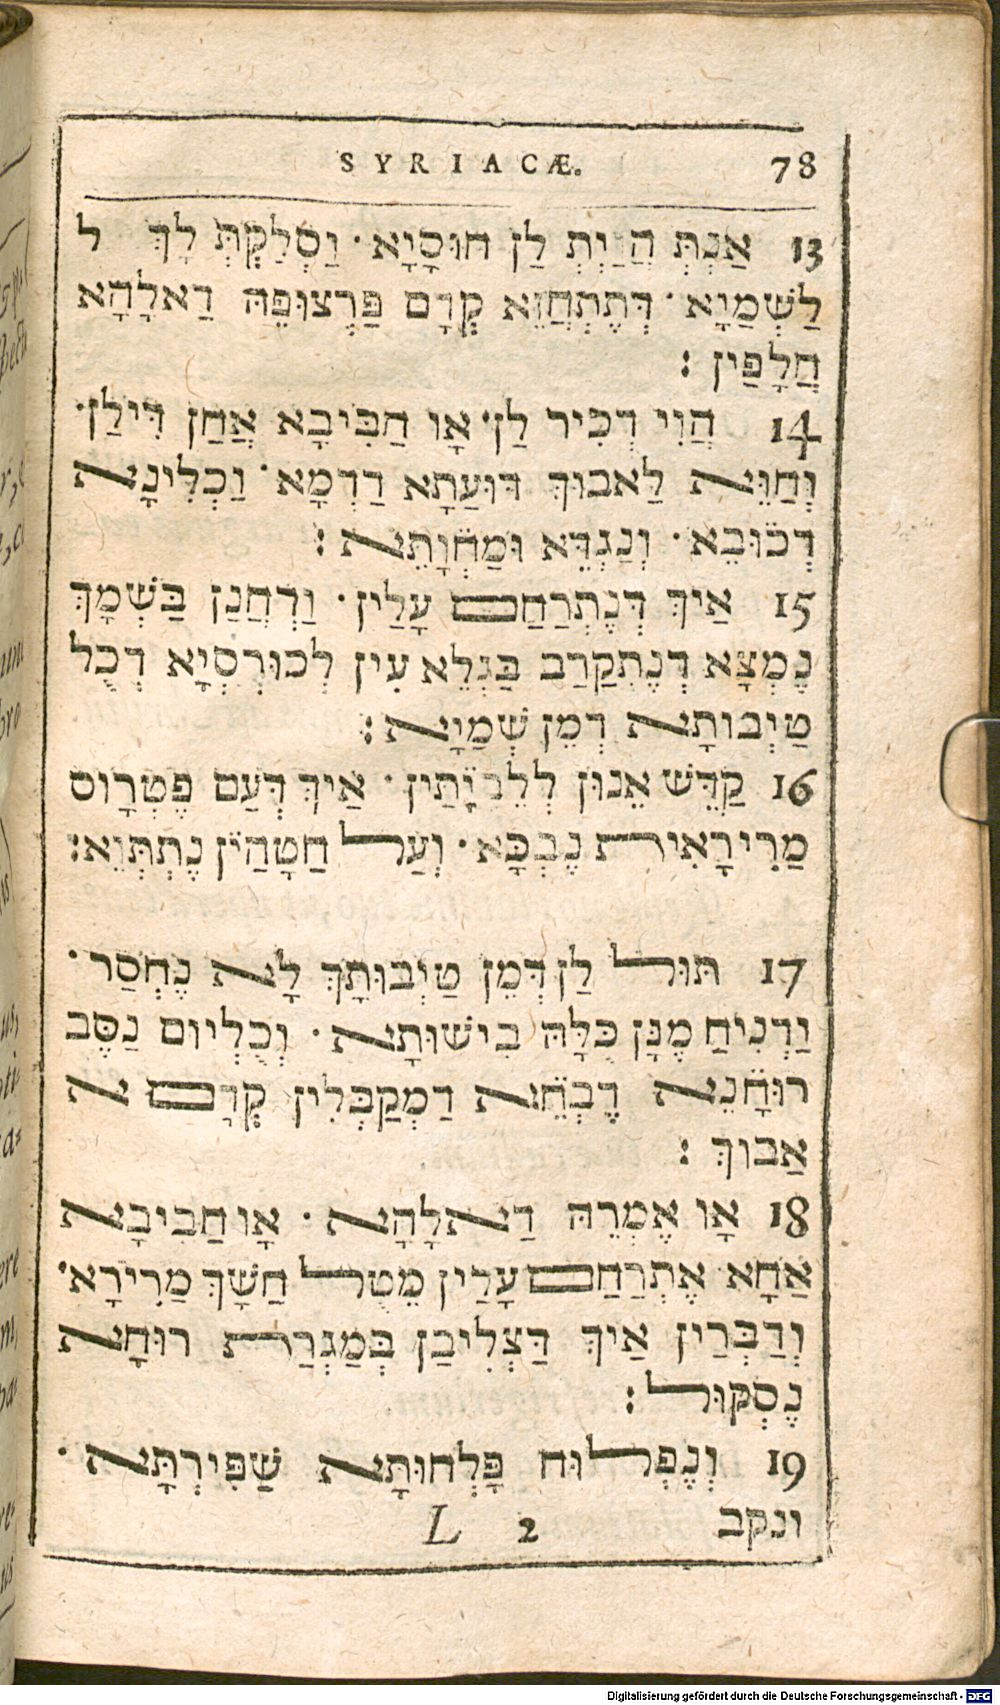 SYRIACÆ. 78
13 אַנְתְּ הֲוַיְתְּ לַן חוּסָיָא · וַסְלַקְתְּ לָךְ ל
לַשְׁמַיָא · דְּתֶתְחֲזֵא קְדָם פַּרְצוּפֵהּ דַאלָהָא
חֲלָפַין :
14 הֲוִי דְכִיר לַן · אָו חַבִּיבָא אֲחַן דִּילַן ·
וְחַוֵּא לַאבוּךְ דּוּעַתָא דַדְמָא · וַכְלִינָא
דְכוּבֵא · וְנַגְדֵּא וּמַחְוָתֵא :
15 אַיךְ דְּנֶתְרַחַם עָלַין · וַדְחֲנַן בַּשְׁמָךְ
נֶמְצָא דְנֶתְקַרַב בַּגְלֵא עִין לְכוּרְסְיָא דְכֻל
טַיְבוּתָא דְמֵן שְׁמַיָא :
16 קַדֵּשׁ אֵנוּן לְלֵבַּוָתַין · אַיךְ דְּעַם פֶּטְרָוס
מַרִירָאִית נֶבְכָּא · וְעַל חַטָהַין נֶתְתְּוֵא :
17 תּוּל לַן דְּמֵן טַיְבוּתָךְ לָא נֶחְסַר ·
וַדְנִיחַ מֶנָּן כֻּלָּהּ בִישׁוּתָא · וְכֻלְיוּם נַסֶּב
רוּחָנֵא דֶבְחֵא דַמְקַבְּלִין קְדָם א
אַבוּךְ :
18 אָו אֶמְרֵהּ דַאלָהָא · אָו חַבִּיבָא
אַחָא · אֶתְרַחַם עָלַין מֵטֻל חַשָׁךְ מַרִירָא ·
וְדַבְּרַין אַיךְ דַּצְלִיבַן בְּמַגְרַת רוּחָא
נֶסְקוּל :
19 וְנֶפְלוּח פָּלְחוּתָּא שַׁפִּירְתָּא ·
L 2 ונקב
Digitalisierung gefördert durch die Deutsche Forschungsgemeinschaft - DFG